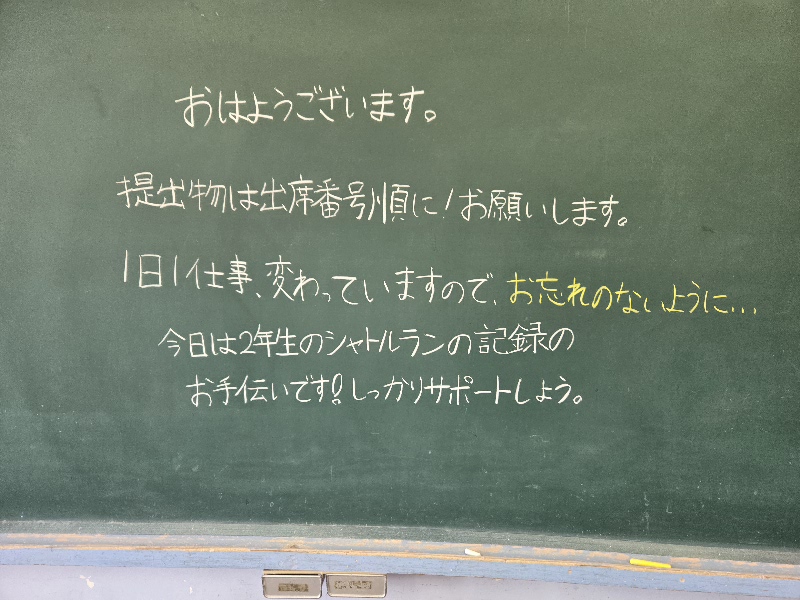 おはようございます。
提出物は出席番号順に!お願いします。
1日1仕事、変わっていますので、お忘れのないように...
今日は2年生のシャトルランの記録の
お手伝いです!しっかりサポートしよう。